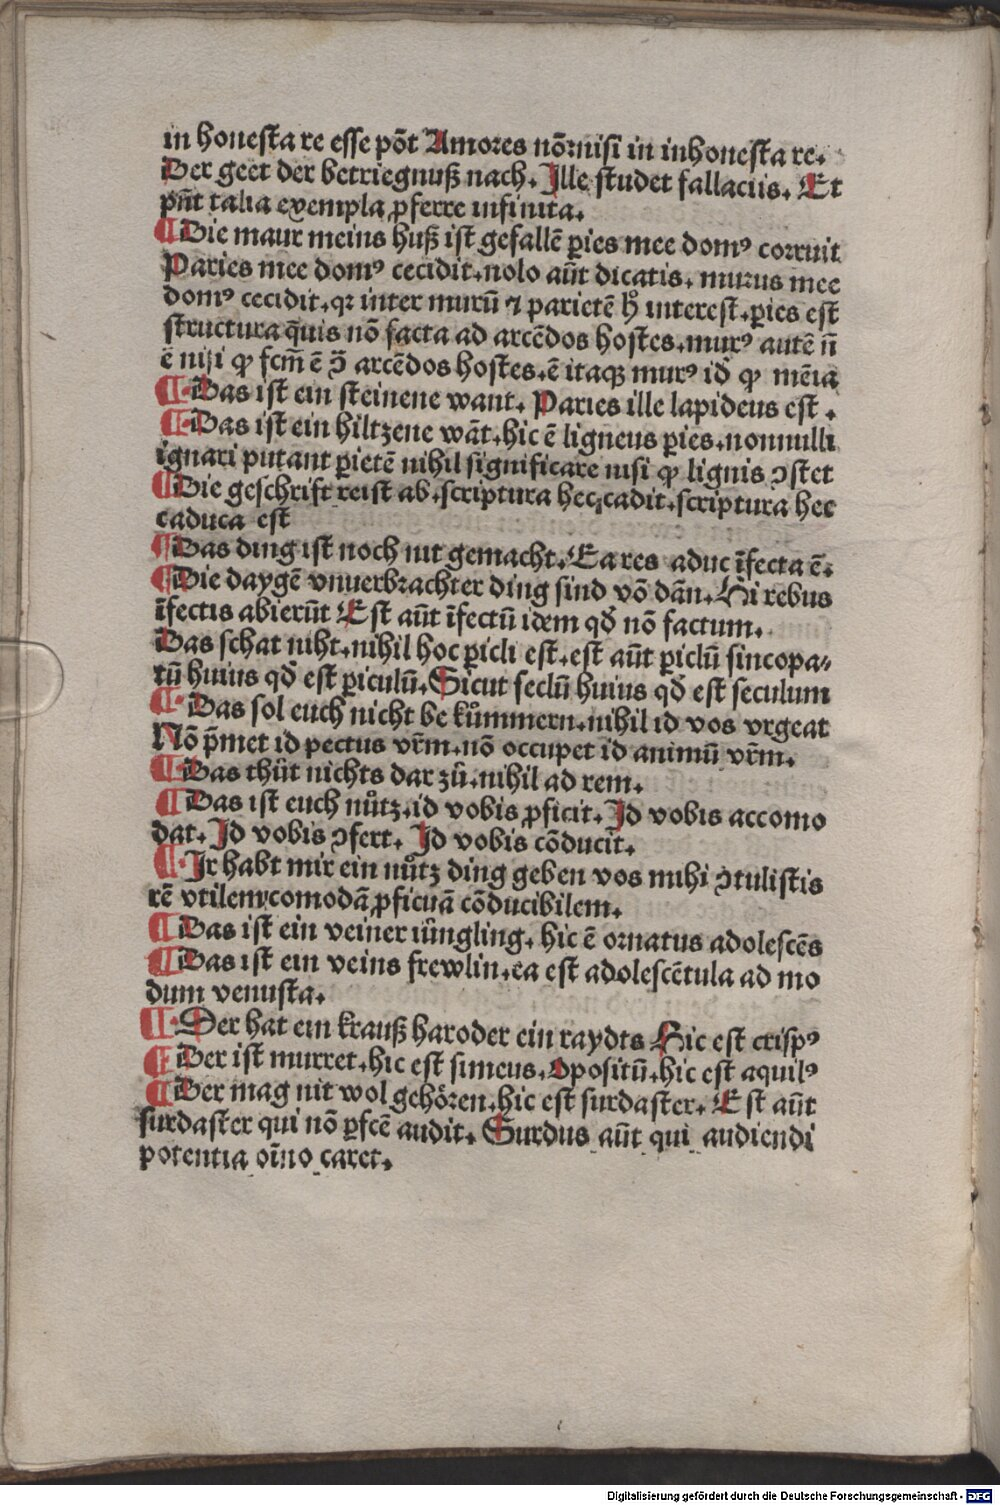 in honesta re esse põt Amores nõ nisi in inhonesta re.
Der geet der betriegnuß nach. Ille studet fallaciis. Et
pñt talia exempla ꝓferre infinita.
¶ Die maur meins huß ist gefallẽ ꝑies mee domꝰ corruit
Paries mee domꝰ cecidit. nolo aũt dicatis. murus mee
domꝰ cecidit. qꝛ inter murũ ⁊ parietẽ hͦ interest. ꝑies est
structura q̃uis nõ facta ad arcẽdos hostes. murꝰ autẽ ñ
ẽ nisi ꝙ fcm̃ ẽ ꝯ̃ arcẽdos hostes. ẽ itaqꝫ murꝰ id ꝙ mẽia
¶ Das ist ein steinene want. Paries ille lapideus est.
¶ Das ist ein hiltzene wãt. hic ẽ ligneus ꝑies. nonnulli
ignari putant ꝑietẽ nihil significare nisi ꝙ lignis ꝯstet
¶ Die geschrift reist ab. scriptura hec cadit. scriptura hec
caduca est
¶ Das ding ist noch nit gemacht. Ea res aduc ĩfecta ẽ.
¶ Die daygẽ vnuerbrachter ding sind võ dãn. Hi rebus
ĩfectis abierũt Est aũt ĩfectũ idem qđ nõ factum.
Das schat niht. nihil hoc ꝑicli est. est aũt ꝑiclũ sincopa⸗
tũ huius qđ est ꝑiculũ. Sicut seclũ huius qđ est seculum
¶ Das sol euch nicht be kůmmern. nihil id vos vrgeat
Nõ p̃met id pectus vr̃m. nõ occupet id animũ vr̃m.
¶ Das thůt nichts dar zů. nihil ad rem.
¶ Das ist euch nůtz. id vobis ꝓficit. Id vobis accomo
dat. Id vobis ꝯfert. Id vobis cõducit.
¶ Ir habt mir ein nůtz ding geben vos mihi ꝯtulistis
rẽ vtilem comodã ꝓficuã cõducibilem.
¶ Das ist ein veiner iůngling. hic ẽ ornatus adolescẽs
¶ Das ist ein veins frewlin. ea est adolescẽtula ad mo
dum venusta.
¶ Der hat ein krauß har oder ein raydts Hic est crispꝰ
¶ Der ist murret. hic est simeus. Opositũ. hic est aquilꝰ
¶ Der mag nit wol gehören. hic est surdaster. Est aũt
surdaster qui nõ ꝑfcẽ audit. Surdus aũt qui audiendi
potentia oĩno caret.
Digitalisierung gefördert durch die Deutsche Forschungsgemeinschaft - DFG